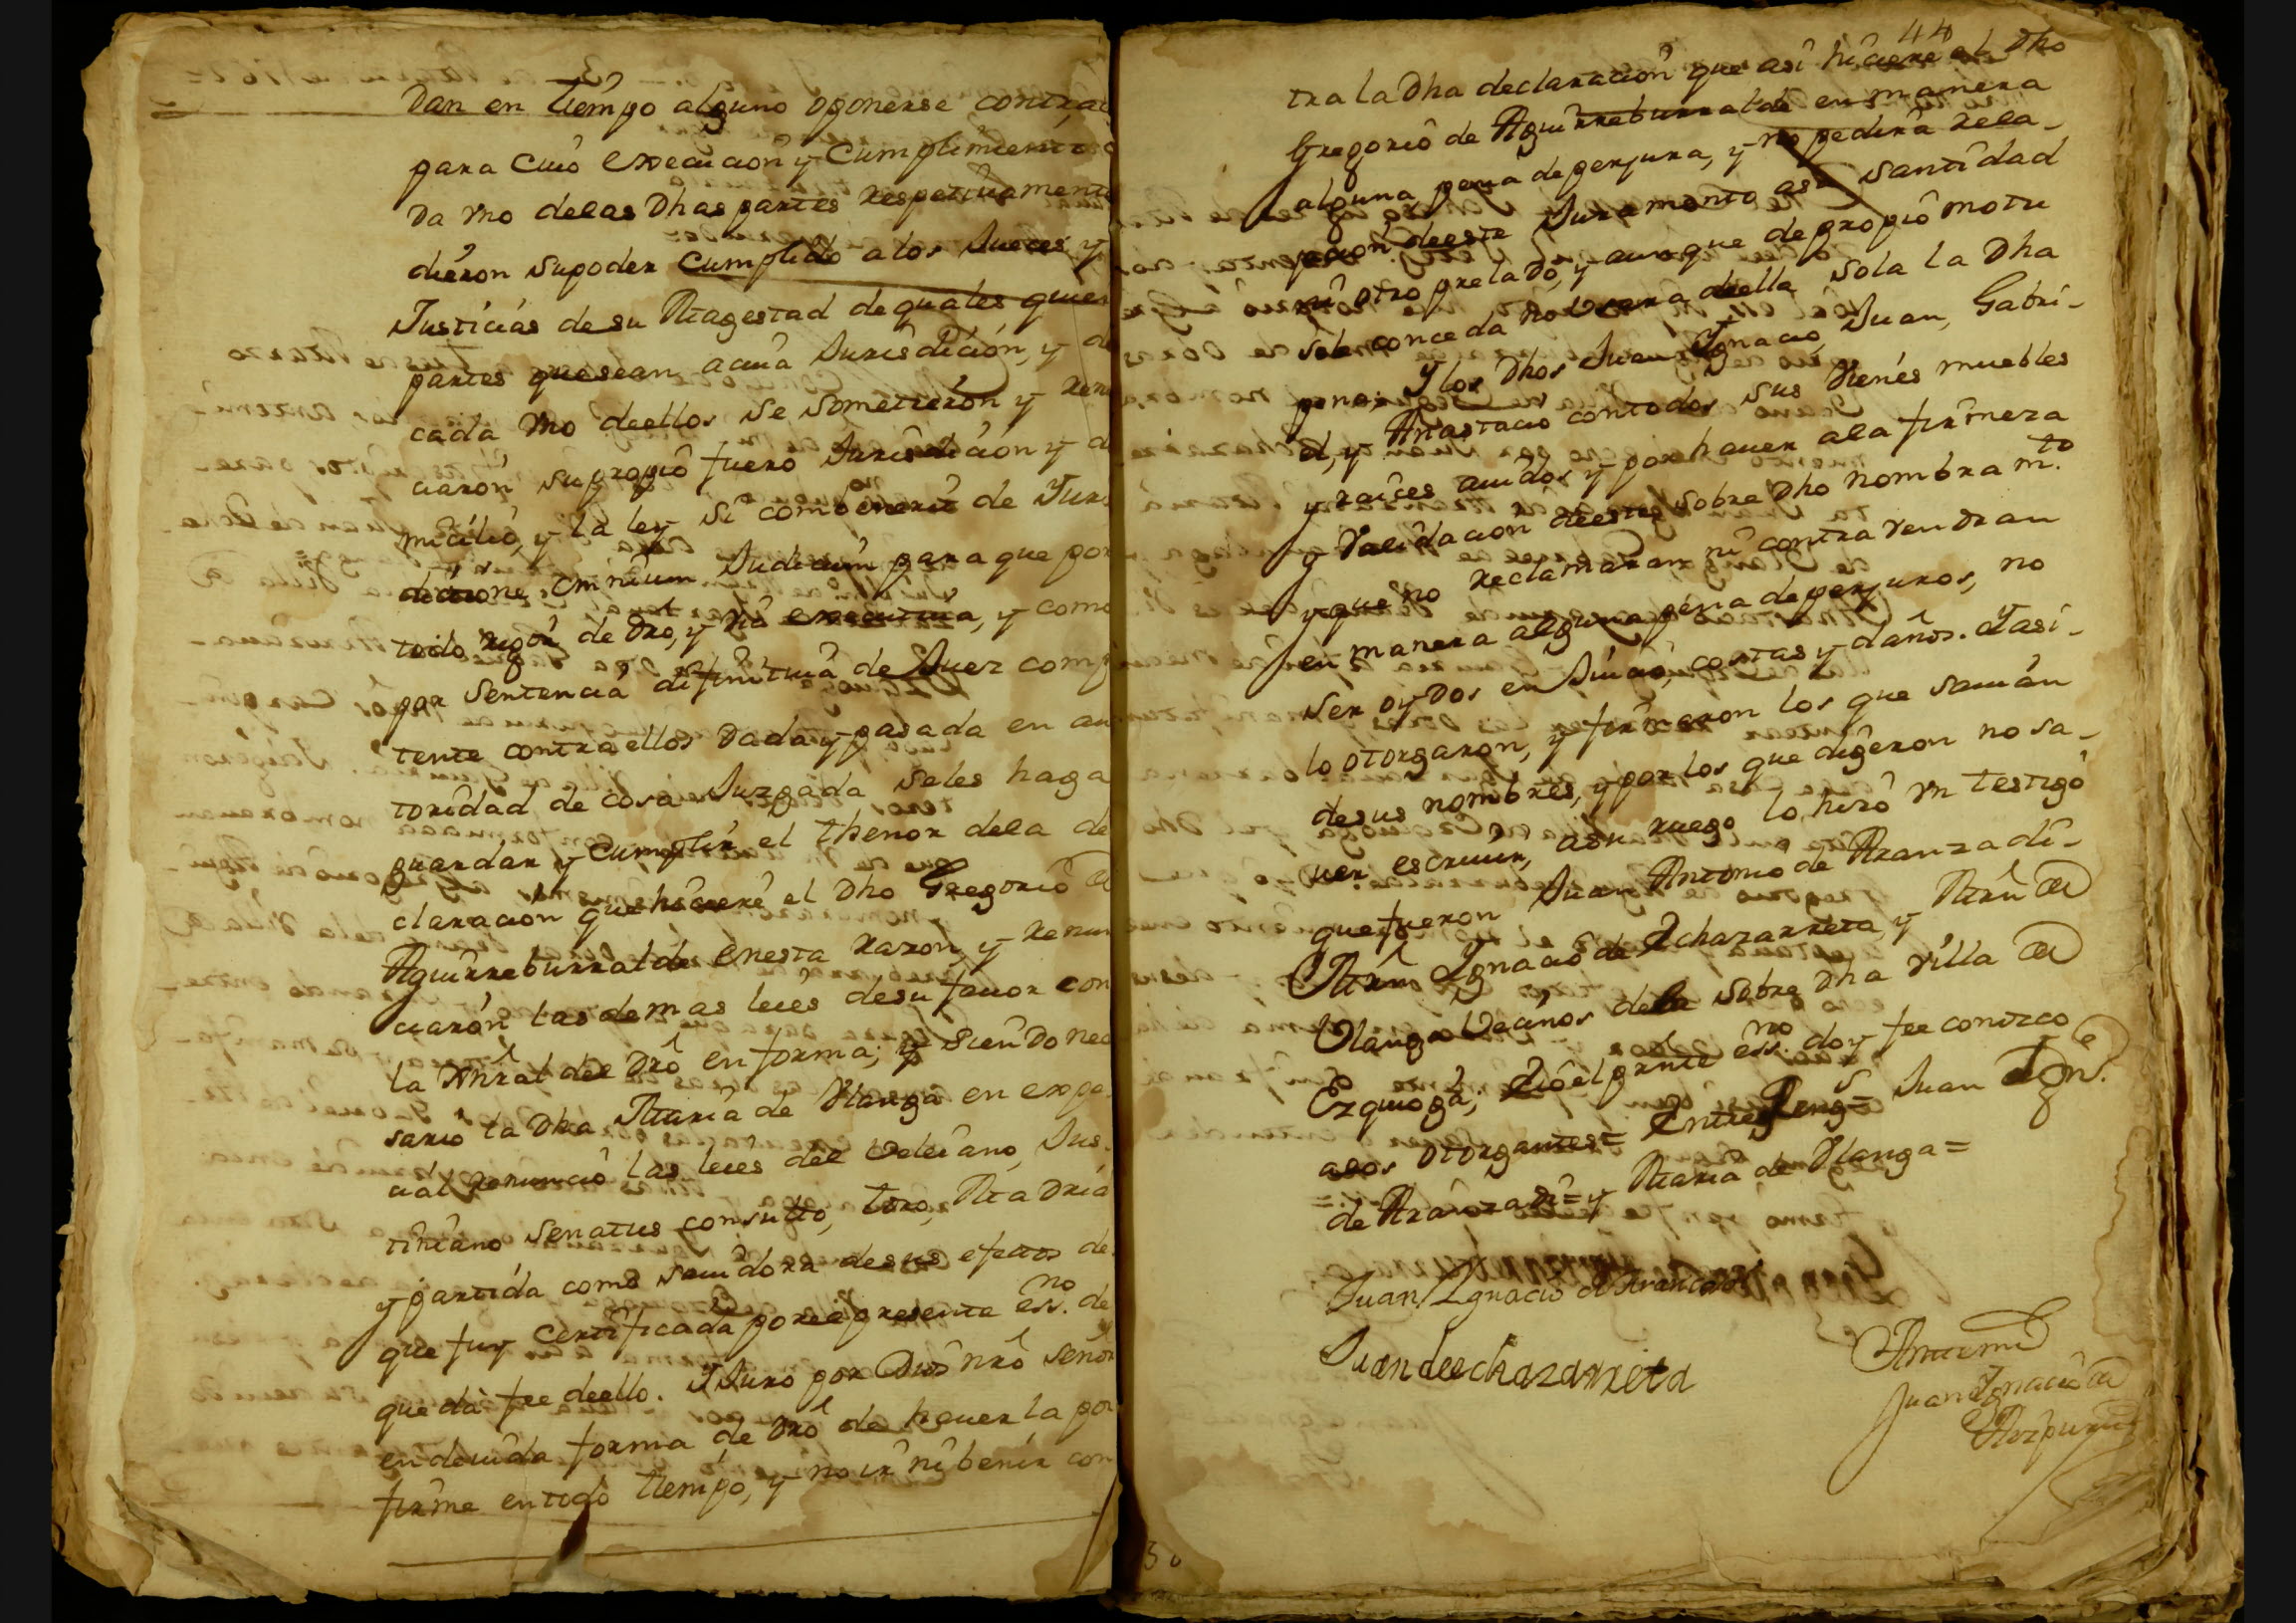 Dan en tiempo alguno oponerse contra,
para cuio execucion y Cumplimiento
Da vno delas Dhas partes respectiuamente
dieron supoder Cumplido alos Jueces y
Justicias de su Magestad de quales quier
partes quesean acuia Jurisdicion, y de
cada vno deellos se sometieron y renu
ciaron supropio fuero Jurisdicion y do
micilio, y la ley si combenerit de Juris
dicione omnium Judicum para que por
todo rigor de Dro, y via executiua, y como
por sentencia difinitiua de Juez compe
tente contra ellos Dada y pasada en au
toridad de cosa Juzgada seles haga
guardar y Cumplir el thenor dela de
claracion que hiciere el Dho Gregorio de
Aguirreburralde enesta razon, y renun
ciaron las demas leies desu fauor con
la Gnral del Dro en forma; y Siendo nece
saria la Dha Maria de Olanga en espe
cial renunció las leies del Veleiano, Jus
tiniano Senatus consulto, toro, Madrid
y partida como sauidora desus efectos de
que fuy Certificada porel presente essno. de
que da fee deello. Y Juró por Dios nro señor
en deuida forma de Dro de hauer la por
firme en todo tiempo, y no ir ni benir con
44
tra la Dha declaracion que asi hiciere el Dho
Gregorio de Aguirreburralde en manera
alguna, pena de perjura, y no pedira rela-
jacion deeste Juramento asu Santidad
ni otro prelado, y aunque de propio motu
sele conceda no vsara deella sola la Dha
pena; Y los Dhos Juan Ignacio, Juan, Gabri-
el, y Anastacio contodos sus vienes muebles
y raices auidos y por hauer ala firmeza
y Validacion deeste sobre Dho nombramto.
y que no reclamaran ni contra vendran
en manera alguna pena de perjuros, no
ser oydos en Juicio, costas y daños. Y asi-
lo otorgaron, y firmaron los que sauian
desus nombres, y por los que digeron no sa-
uer escriuir, asu ruego lo hizo vn testigo
que fueron Juan Antonio de Aranzadi-
Mrn Ignacio de Echazarreta, y Mrn de
Olanga Vecinos dela sobre Dha villa de
Ezquioga; Eio el prnte essno. doy fee conozco
alos otorgantes= Entre Reng.s= Juan Ign.o
de Aranzadi= y Maria de Olanga=
Juan Ignacio de Aranzadi
Juan de echazarreta
Antemi
Juan Ignacio de
Azpuru